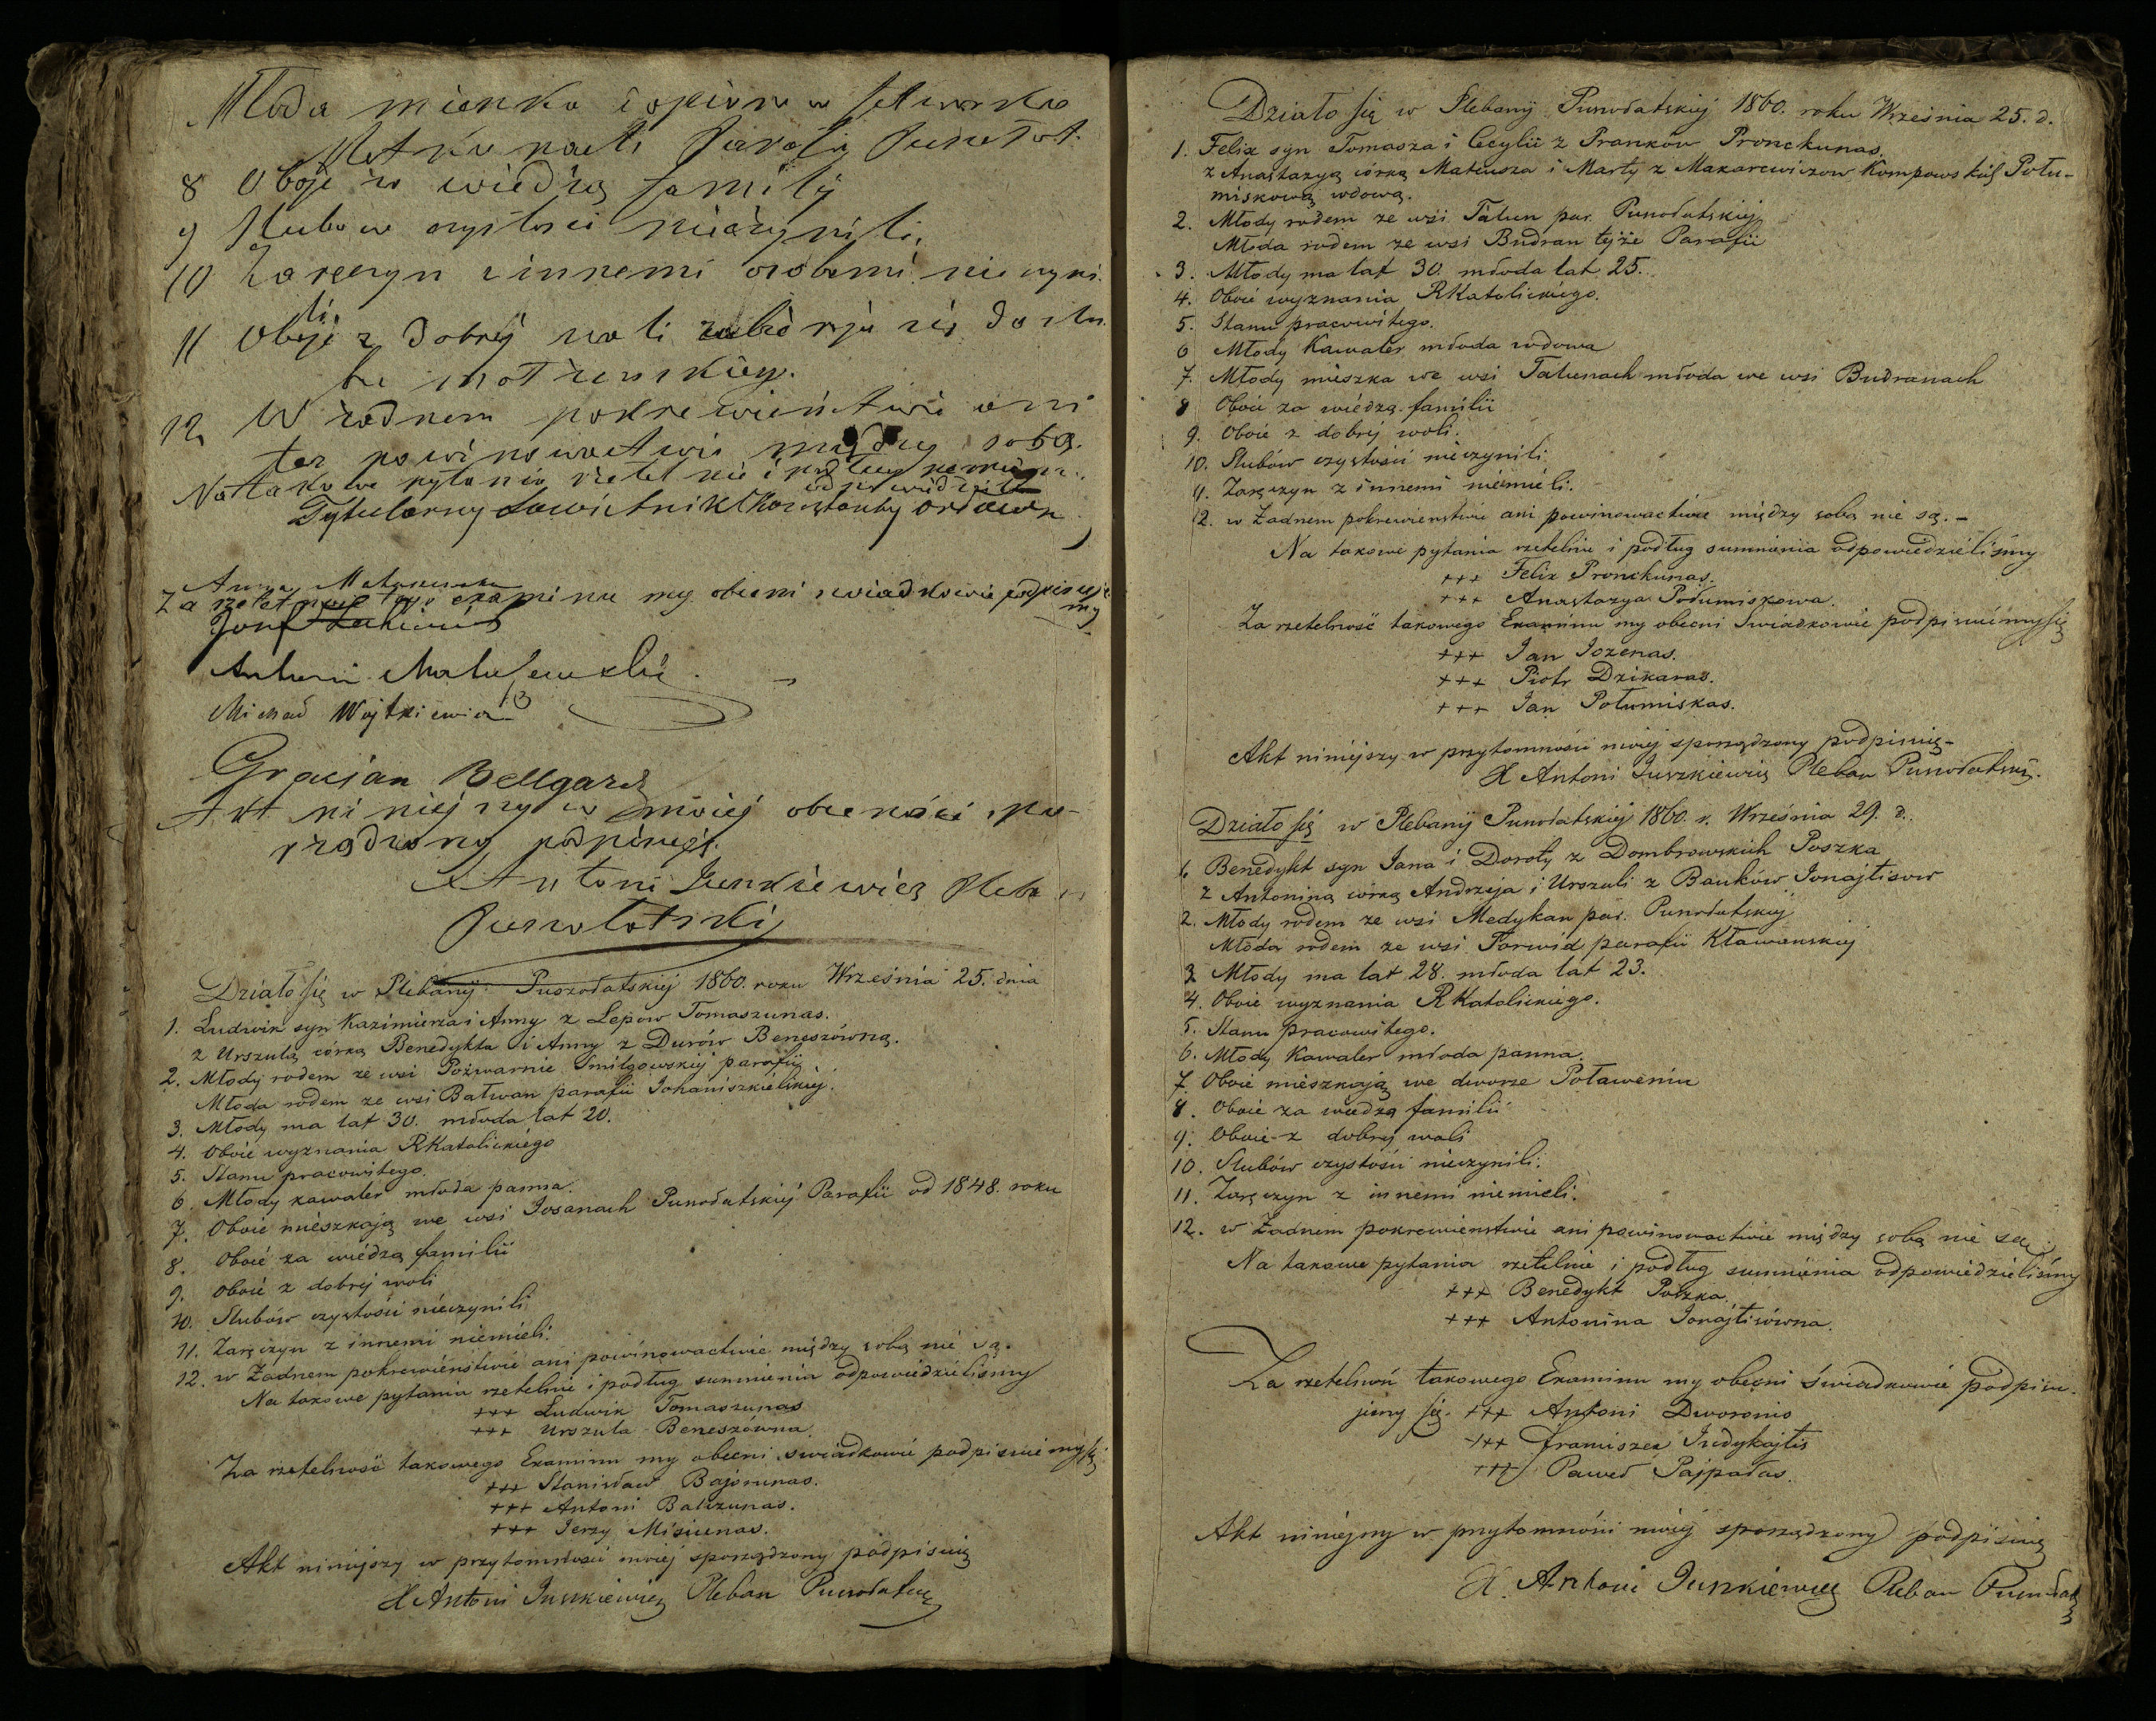 Młoda mieszka
8 Oboje za wiedzą familij
9 Slubow czystosci nieczynili.
10 Zaręczyn z innemi osobami nie czyni-
li
11 Oboje z Dobrej woli zabierają się do slu-
bu małżenskiego.
12 W żadnem pokrewieństwie ani
też powinowactwie między sobą.
Na takowe pytania rzetelnie i podług
Tytularny Sowietnik
Anna
Za rzetelnosc tego examinu my obecni swiadkowie podpisuje
my
Józef
Antoni Matusewski
Michał Wojtkiewicz
Gracjan Bellgard
Akt niniejszy w mojej obecności spo-
rządzony podpisuję.
X Antoni Juszkiewicz Pleban
Puszołatski
Działo się w Plebanij Puszołatskiej 1860. roku Września 25. dnia
1. Ludwik syn Kazimierza i Anny z Lepow Tomaszunas.
z Urszulą córką Benedykta i Anny z Durów Beneszówną.
2. Młody rodem ze wsi Pożwarnie Smilgowskiej parafij
Młoda rodem ze wsi Batwan parafii Johaniszkielskiej.
3. Młody ma lat 30. młoda lat 20.
4. Oboie wyznania RKatolickiego
5. Stanu pracowitego.
6. Młody kawaler młoda panna.
7. Oboie mieszkają we wsi Josanach Punołatskiej Parafii od 1848. roku
8. Oboie za wiedzą familii
9. Oboie z dobrej woli
10. Slubów czystości nieczynili
11. Zaręczyn z innemi niemieli.
12. w Żadnem pokrewieństwie ani powinowactwie między sobą nie są.
Na takowe pytania rzetelnie i podług sumnienia odpowiedzieliśmy
+++ Ludwik Tomaszunas
+++ Urszula Beneszówna
Za rzetelność takowego Examinu my obecni swiadkowie podpisuiemy się
+++ Stanisław Bajorunas.
+++ Antoni Balczunas.
+++ Jerzy Misiunas.
Akt niniejszy w przytomności moiej sporządzony podpisuię
X Antoni Juszkiewicz Pleban Punołatski
Działo się w Plebanij Punołatskiej 1860. roku Września 25. d.
1. Felix syn Tomasza i Cecylii z Pranków Pronckunas
z Anastazyą córką Mateusza i Marty z Makarewiczow Kompowskich Połu-
miskową wdową.
2. Młody rodem ze wsi Talun par. Punołatskiej
Młoda rodem ze wsi Budran tejże Parafii
3. Młody ma lat 30. młoda lat 25.
4. Oboie wyznania RKatolickiego.
5. Stanu pracowitego.
6 Młody Kawaler młoda wdowa
7. Młody mieszka we wsi Talunach młoda we wsi Budranach
8 Oboie za wiedzą familii
9. Oboie z dobrej woli.
10. Slubów czystości nieczynili
11. Zaręczyn z innemi niemieli.
12. w Żadnem pokrewienstwie ani powinowactwie między sobą nie są. -
Na takowe pytania rzetelnie i podług sumnienia odpowiedzieliśmy
+++ Felix Pronckunas.
+++ Anastazya Połumiskowa.
Za rzetelność takowego Examinu my obecni Swiadkowie podpisuiemy się
+++ Jan Jozenas.
+++ Piotr Dzikaras.
+++ Jan Połumiskas.
Akt niniejszy w przytomności moiej sporządzony podpisuię-
X Antoni Juszkiewicz Pleban Punołatski.
Działo się w Plebanij Punołatskiej 1860. r. Września 29. d.
1. Benedykt syn Jana i Doroty z Dombrowskich Poszka
z Antoniną córką Andrzeja i Urszuli z Bauków Jonajtisow
2. Młody rodem ze wsi Medykan par. Punołatskiej
Młoda rodem ze wsi Porwid parafii Kławanskiej
3 Młody ma lat 28. młoda lat 23.
4. Oboie wyznania RKatolickiego.
5. Stanu pracowitego.
6. Młody Kawaler młoda panna.
7 Oboie mieszkają we dworze Poławeniu
8. Oboie za wiedzą familii
9. Oboie z dobrej woli
10. Slubów czystości nieczynili.
11. Zaręczyn z innemi niemieli.
12. w Żadnem pokrewienstwie ani powinowactwie między sobą nie są
Na takowe pytania rzetelnie i podług sumnienia odpowiedzieliśmy
+++ Benedykt Poszka.
+++ Antonina Jonajtisówna.
Za rzetelność takowego Examinu my obecni świadkowie podpisu-
jemy się. +++ Antoni Dworonis
+++ Franciszek Indykajtis
+++ Paweł Pajpałas.
Akt niniejszy w przytomności moiej sporządzony podpisuię
X. Antoni Juszkiewicz Pleban